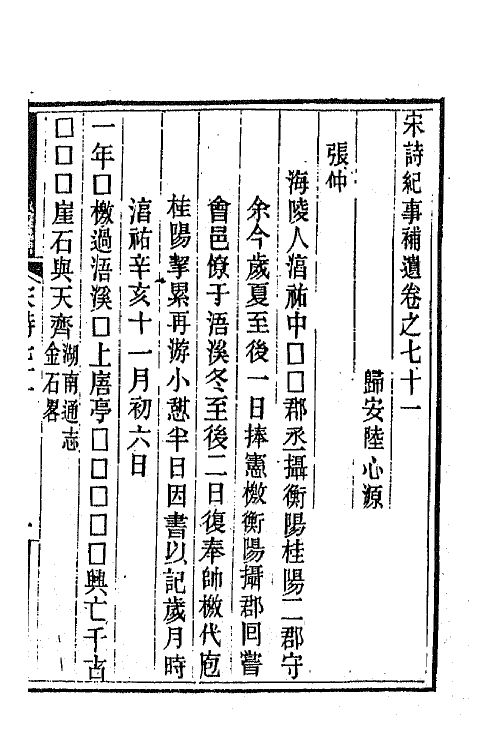 宋詩紀事補遺卷之七十一
歸安陸心源
張仲
海陵人湻祐中□□郡丞攝衡陽桂陽二郡守
余今歲夏至後一日捧憲檄衡陽攝郡回嘗
會邑僚于浯溪冬至後二日復奉帥檄代庖
桂陽挈累再游小憩半日因書以記歲月時
湻祐辛亥十一月初六日
一年□檄過浯溪□上𢈪亭□□□□□興亡千古
□□□崖石與天齊湖南通志
金石畧